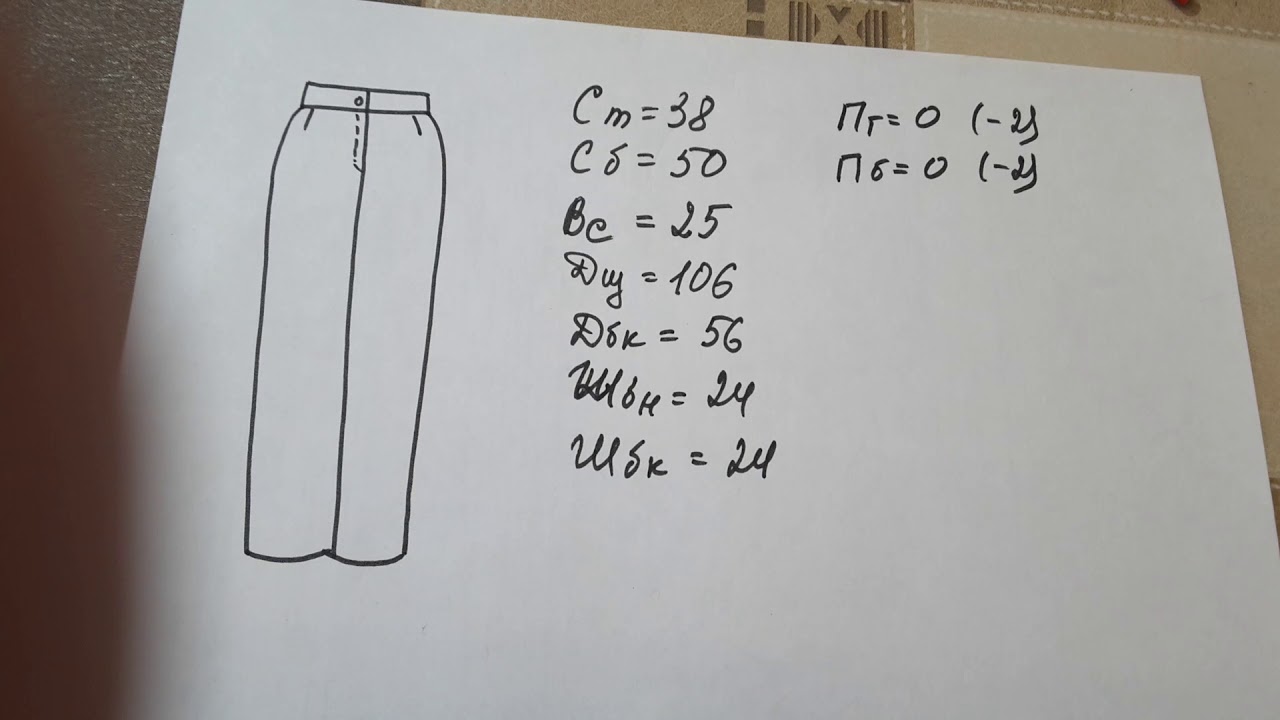 Ст = 38
Сб = 50
Вс = 25
Дш = 106
Дбк = 56
Шбн = 24
Шбк = 24
Пг = 0 (-2)
Пб = 0 (-2)